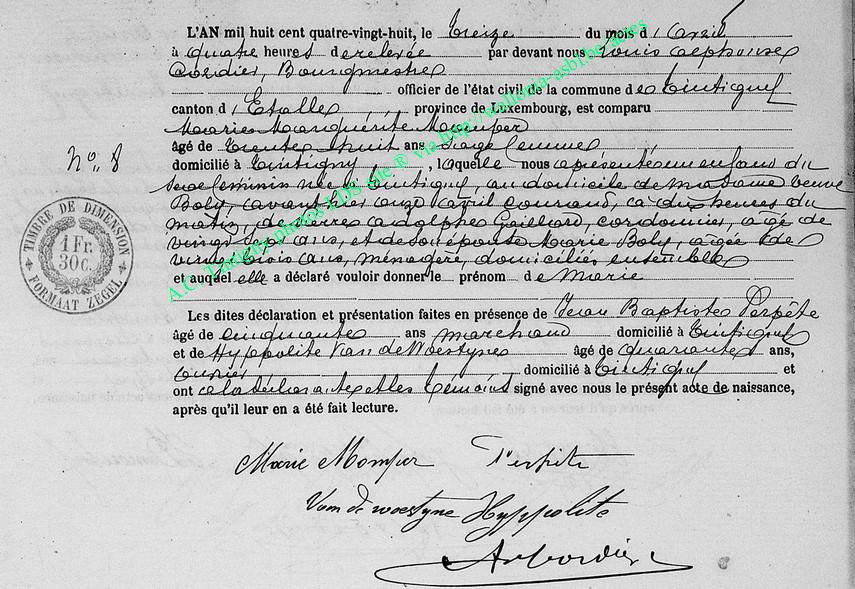 L'AN mil huit cent quatre-vingt-huit, le treize du mois d'Avril
à quatre heures de relevée par devant nous Louis Alphonse
Cordier, Bourgmestre
officier de l'état civil de la commune de Tintigny
canton d'Etalle, province de Luxembourg, est comparu
Marie Marguerite Momper
âgé de trente huit ans sage femme,
domicilié à Tintigny, laquelle nous a présenté un enfant du
sexe féminin née à Tintigny, au domicile de madame veuve
Boly, avant hier onze avril courant, à dix heures du
matin, de Pierre Adolphe Gaillard, cordonnier, âgé de
vingt ans, et de son épouse Marie Boly, âgée de
vingt trois ans, ménagère, domiciliés ensemble
et auquel elle a déclaré vouloir donner le prénom de Marie
Les dites déclaration et présentation faites en présence de Jean Baptiste Perpête
âgé de cinquante ans marchand domicilié à Tintigny
et de Hyppolite Van de Woestyne âgé de quarante ans,
domicilié à Tintigny et
ont la déclarante et les témoins signé avec nous le présent acte de naissance,
après qu'il leur en a été fait lecture.
No. 8
TIMBRE DE DIMENSION
1 Fr.
30 c.
FORMAAT ZEGEL
Marie Momper Perpête
Van de woestyne Hyppolite
A. Cordier
A.C. Tintigny photos EDS site ® via http://wallonia-asbl.be/actes